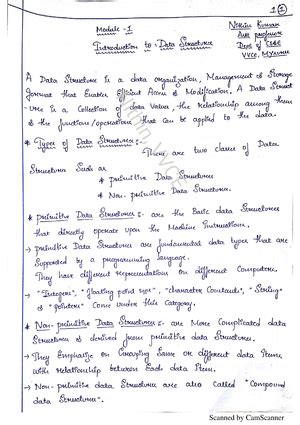 1 1
Nithin Kumar
Module -1
Asst professor
Introduction to Data Structures
Dept of CS&E
VVCE, Mysuru
A Data Structure is a data organization, Management & Storage
format that Enable Efficient Access & Modification. A Data Struct
-ure is a Collection of Data Value, the relationship among them
& the functions/operations that can be applied to the data.
* Types of Data Structures:-
There are two classes of Data
Structures Such as
* primitive Data Structures
* Non-primitive Data Structures.
* primitive Data Structures:- are the Basic data Structures
that directly operate upon the Machine Instructions.
→ primitive Data Structures are fundamental data types that are
Supported by a programming language.
They have different representations on different Computers.
→ "Integers", "floating point nos", "character Constants", "String"
& "pointers" Come under this Category.
* Non-primitive Data Structures:- are More Complicated data
Structures & derived from primitive data Structures.
→ They Emphasize on Grouping Same or different data Items
with relationship between Each data Item.
→ Non-primitive data Structures are also called "Compound
data Structures".
Scanned by CamScanner